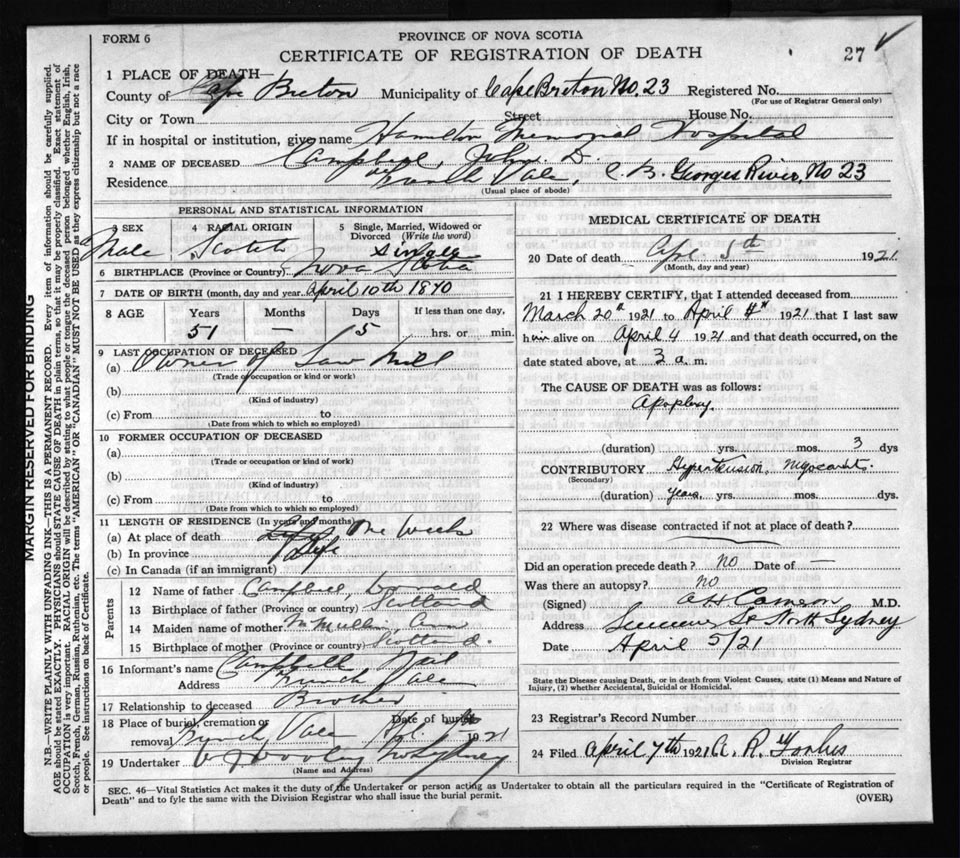 FORM 6
PROVINCE OF NOVA SCOTIA
CERTIFICATE OF REGISTRATION OF DEATH
27
1 PLACE OF DEATH
County of Cape Breton Municipality of Cape Breton No. 23 Registered No.
(For use of Registrar General only)
City or Town Street House No.
If in hospital or institution, give name Hamilton Memorial Hospital
2 NAME OF DECEASED Campbell, John D.
Residence Vale, C. B. Georges River, No 23
(Usual place of abode)
PERSONAL AND STATISTICAL INFORMATION
3 SEX 4 RACIAL ORIGIN 5 Single, Married, Widowed or Divorced (Write the word)
Male Scotch Single
6 BIRTHPLACE (Province or Country) Nova Scotia
7 DATE OF BIRTH (month, day and year) April 10th 1870
8 AGE Years Months Days If less than one day,
51 — 5 hrs. or min.
9 LAST OCCUPATION OF DECEASED
(a) Owner of Saw Mill
(Trade or occupation or kind or work)
(b)
(Kind of industry)
(c) From to
(Date from which to which so employed)
10 FORMER OCCUPATION OF DECEASED
(a)
(Trade or occupation or kind of work)
(b)
(Kind of industry)
(c) From to
(Date from which to which so employed)
11 LENGTH OF RESIDENCE (In years and months)
(a) At place of death One Week
(b) In province Life
(c) In Canada (if an immigrant)
Parents
12 Name of father Campbell, Donald
13 Birthplace of father (Province or country) Scotland
14 Maiden name of mother McMullin, Ann
15 Birthplace of mother (Province or country) Scotland.
16 Informant's name Campbell Neil
Address French Vale
17 Relationship to deceased Brother
18 Place of burial, cremation or removal French Vale Date of burial 1921
19 Undertaker
(Name and Address)
MEDICAL CERTIFICATE OF DEATH
20 Date of death Apr. 5th 1921
(Month, day and year)
21 I HEREBY CERTIFY, that I attended deceased from
March 20th 1921 to April 4th 1921 that I last saw
him alive on April 4 1921 and that death occurred, on the
date stated above, at 3 a. m.
The CAUSE OF DEATH was as follows:
Apoplexy.
(duration) yrs. mos. 3 dys
CONTRIBUTORY Hypertension, myocarditis.
(Secondary)
(duration) years, yrs. mos. dys.
22 Where was disease contracted if not at place of death?
Did an operation precede death? No Date of —
Was there an autopsy? No
(Signed) A H Cameron M.D.
Address St North Sydney
Date April 5/21
State the Disease causing Death, or in death from Violent Causes, state (1) Means and Nature of Injury, (2) whether Accidental, Suicidal or Homicidal.
23 Registrar's Record Number
24 Filed April 7th 1921 A. R. Forbes
Division Registrar
SEC. 46—Vital Statistics Act makes it the duty of the Undertaker or person acting as Undertaker to obtain all the particulars required in the "Certificate of Registration of
Death" and to fyle the same with the Division Registrar who shall issue the burial permit.
(OVER)
MARGIN RESERVED FOR BINDING
N.B.—WRITE PLAINLY WITH UNFADING INK—THIS IS A PERMANENT RECORD. Every item of information should be carefully supplied.
AGE should be stated EXACTLY. PHYSICIANS should STATE CAUSE OF DEATH in plain terms, so that it may be properly classified. Exact statement of
OCCUPATION is very important. RACIAL ORIGIN will be described by stating to what people or tongue the deceased person belonged whether English, Irish,
Scotch, French, German, Russian, Ruthenian, etc. The terms "AMERICAN" OR "CANADIAN" MUST NOT BE USED as they express citizenship but not a race
or people. See instructions on back of Certificate.